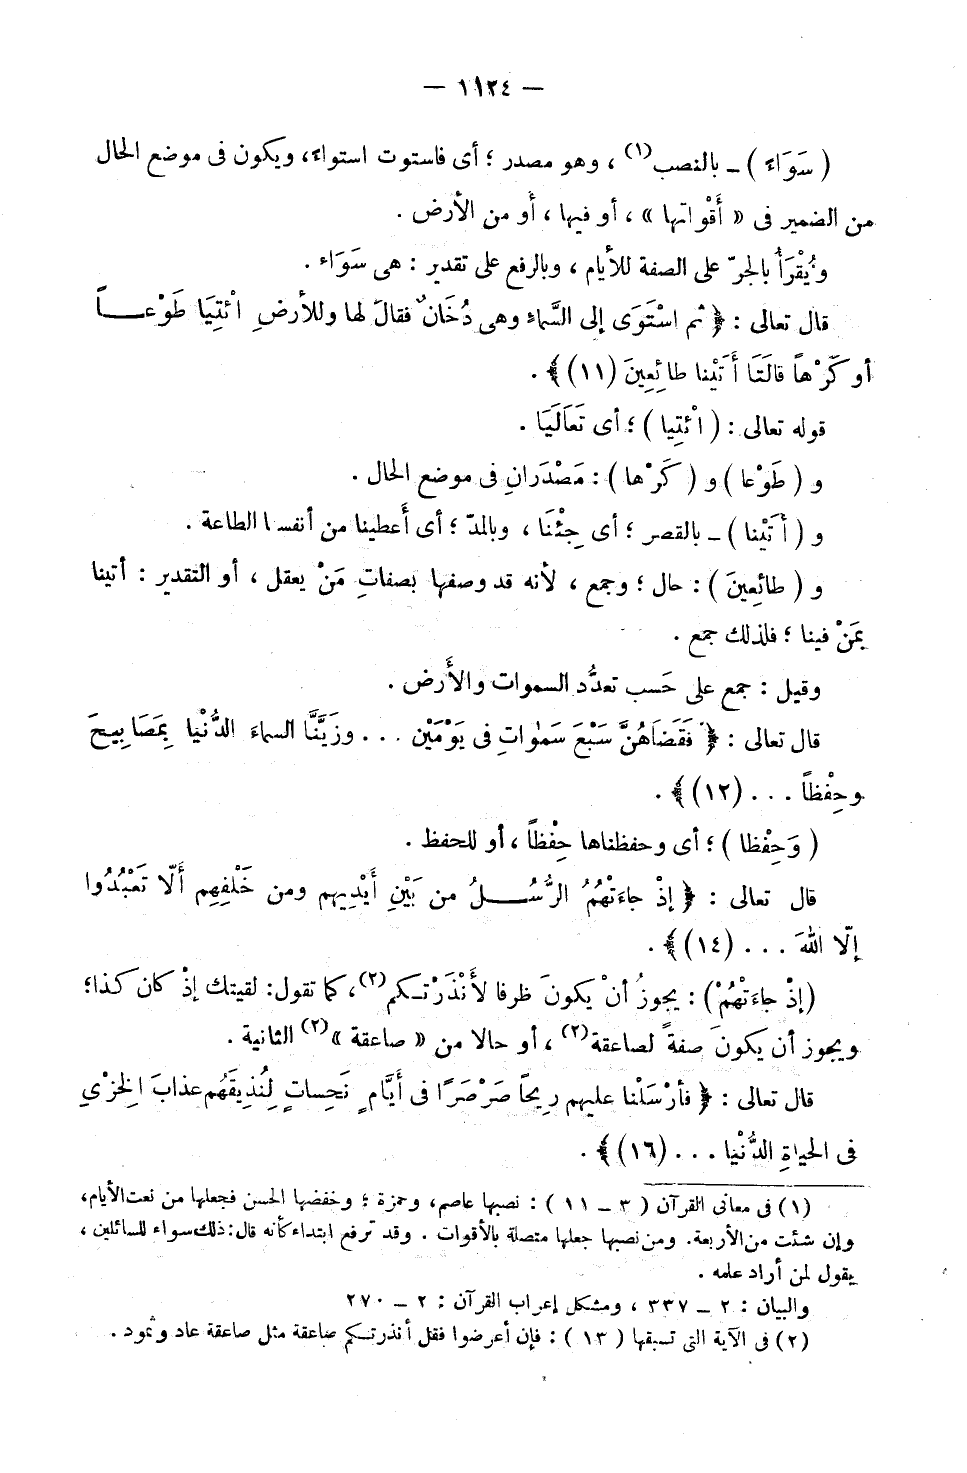 — ١١٢٤ —
( سَوَاءً ) ـ بالنصب(١) ، وهو مصدر ؛ أى فاستوت استواء، ويكون فى موضع الحال
من الضمير فى « أَقْواتها » ، أو فيها ، أو من الأرض .
ويُقْرَأُ بالجرّ على الصفة للأيام ، وبالرفع على تقدير : هى سَوَاء .
قال تعالى : ﴿ ثم اسْتَوَى إلى السَّماءِ وهى دُخَانٌ فقالَ لها وللأرضِ ائْتِيَا طَوْعــاً
أو كَرْهاً قالَتَا أَتَيْنا طائِعِينَ (١١) ﴾ .
قوله تعالى : ( ائْتِيا ) ؛ أى تَعَالَيَا .
و ( طَوْعا ) و ( كَرْها ) : مَصْدَرانِ فى موضع الحال .
و ( أَتَيْنا ) ـ بالقصر ؛ أى جِئْنَا ، وبالمدّ ؛ أى أَعطينا من أنفسنا الطاعة .
و ( طائِعِينَ ) : حال ؛ وجمع ، لأنه قد وصفها بصفاتِ مَنْ يعقل ، أو التقدير : أتينا
بمَنْ فينا ؛ فلذلك جمع .
وقيل : جمع على حَسب تعدُّد السموات والأَرض .
قال تعالى : ﴿ فَقَضَاهُنَّ سَبْعَ سَمٰواتٍ فى يَوْمَيْن ... وزَيَّنَّا السماءَ الدُّنْيا بِمَصَابِيحَ
وحِفْظاً ... (١٢) ﴾ .
( وَحِفْظا ) ؛ أى وحفظناها حِفْظاً ، أو للحفظ .
قال تعالى : ﴿ إذْ جاءَتْهُمُ الرُّسُــلُ من بَيْنِ أَيْدِيهم ومن خَلْفِهِم أَلّا تَعْبُدُوا
إلّا اللهَ ... (١٤) ﴾ .
(إذْ جاءَتْهُمْ) : يجوزُ أنْ يكونَ ظرفا لأَنْذَرْتـكم(٢)، كما تقول: لقيتك إذْ كان كذا؛
ويجوز أن يكونَ صفةً لصاعقة(٢) ، أو حالا من « صاعقة »(٢) الثانية .
قال تعالى : ﴿ فأرْسَلْنا عليهم رِيحًا صَرْصَرًا فى أَيَّامٍ نَحِساتٍ لِنُذِيقَهُم عذابَ الخِزْىِ
فى الحياةِ الدُّنْيا ... (١٦) ﴾ .
(١) فى معانى القرآن ( ٣ ـ ١١ ) : نصبها عاصم، وحمزة ؛ وخفضها الحسن فجعلها من نعت الأيام،
وإن شئت من الأربعة. ومن نصبها جعلها متصلة بالأقوات . وقد ترفع ابتداء كأنه قال: ذلك سواء للسائلين ،
يقول لمن أراد علمه .
والبيان : ٢ ـ ٣٣٧ ، ومشكل إعراب القرآن : ٢ ـ ٢٧٠
(٢) فى الآية التى تسبقها ( ١٣ ) : فإن أعرضوا فقل أنذرتـكم صاعقة مثل صاعقة عاد وثمود .